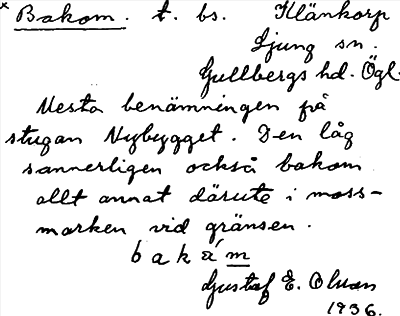 x Bakom. t. bs. Klänkorp
Ljung sn.
Gullbergs hd. Ögl.
Mesta benämningen på
stugan Nybygget. Den låg
sannerligen också bakom
allt annat därute i moss-
marken vid gränsen.
bakám
Gustaf E. Olson
1936.